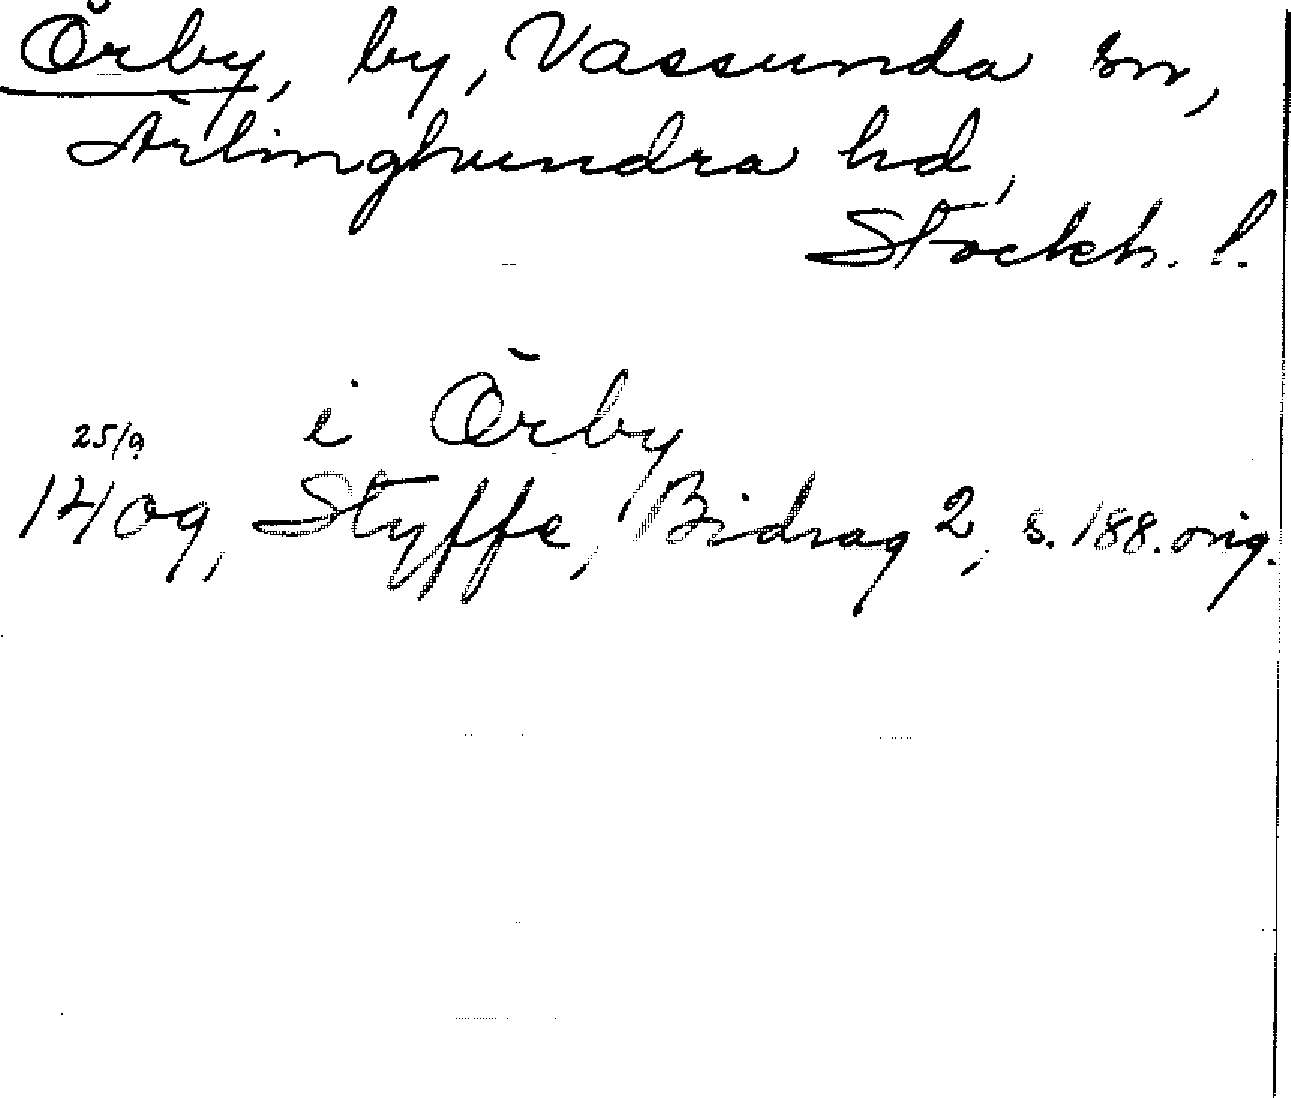 Örby, by, Vassunda sn,
Ärlinghundra hd,
Stockh. l.
i Örby
25/9
1409, Styffe, Bidrag 2, s. 188. orig.